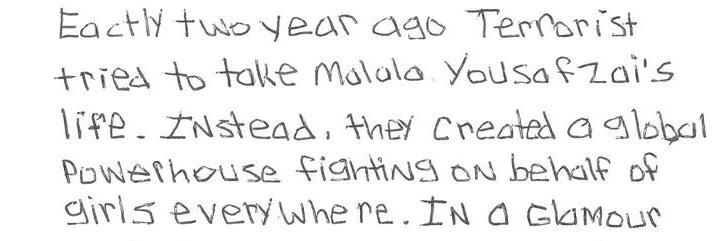 Eactly two year ago Terrorist
tried to take Malala Yousafzai's
life. INstead, they created a global
Powerhouse fighting on behalf of
girls everywhere. IN a Glamour